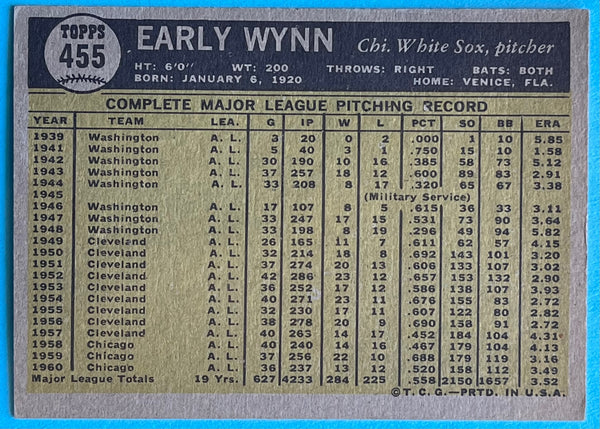 TOPPS
455
EARLY WYNN Chi. White Sox, pitcher
HT: 6'0" WT: 200 THROWS: RIGHT BATS: BOTH
BORN: JANUARY 6, 1920 HOME: VENICE, FLA.
COMPLETE MAJOR LEAGUE PITCHING RECORD
YEAR TEAM LEA. G IP W L PCT SO BB ERA
1939 Washington A. L. 3 20 0 2 .000 1 10 5.85
1941 Washington A. L. 5 40 3 1 .750 15 10 1.58
1942 Washington A. L. 30 190 10 16 .385 58 73 5.12
1943 Washington A. L. 37 257 18 12 .600 89 83 2.91
1944 Washington A. L. 33 208 8 17 .320 65 67 3.38
1945 (Military Service)
1946 Washington A. L. 17 107 8 5 .615 36 33 3.11
1947 Washington A. L. 33 247 17 15 .531 73 90 3.64
1948 Washington A. L. 33 198 8 19 .296 49 94 5.82
1949 Cleveland A. L. 26 165 11 7 .611 62 57 4.15
1950 Cleveland A. L. 32 214 18 8 .692 143 101 3.20
1951 Cleveland A. L. 37 274 20 13 .606 133 107 3.02
1952 Cleveland A. L. 42 286 23 12 .657 153 132 2.90
1953 Cleveland A. L. 36 252 17 12 .586 138 107 3.93
1954 Cleveland A. L. 40 271 23 11 .676 155 83 2.72
1955 Cleveland A. L. 32 230 17 11 .607 122 80 2.82
1956 Cleveland A. L. 38 278 20 9 .690 158 91 2.72
1957 Cleveland A. L. 40 263 14 17 .452 184 104 4.31
1958 Chicago A. L. 40 240 14 16 .467 179 104 4.13
1959 Chicago A. L. 37 256 22 10 .688 179 119 3.16
1960 Chicago A. L. 36 237 13 12 .520 158 112 3.49
Major League Totals 19 Yrs. 627 4233 284 225 .558 2150 1657 3.52
© T. C. G.—PRTD. IN U.S.A.